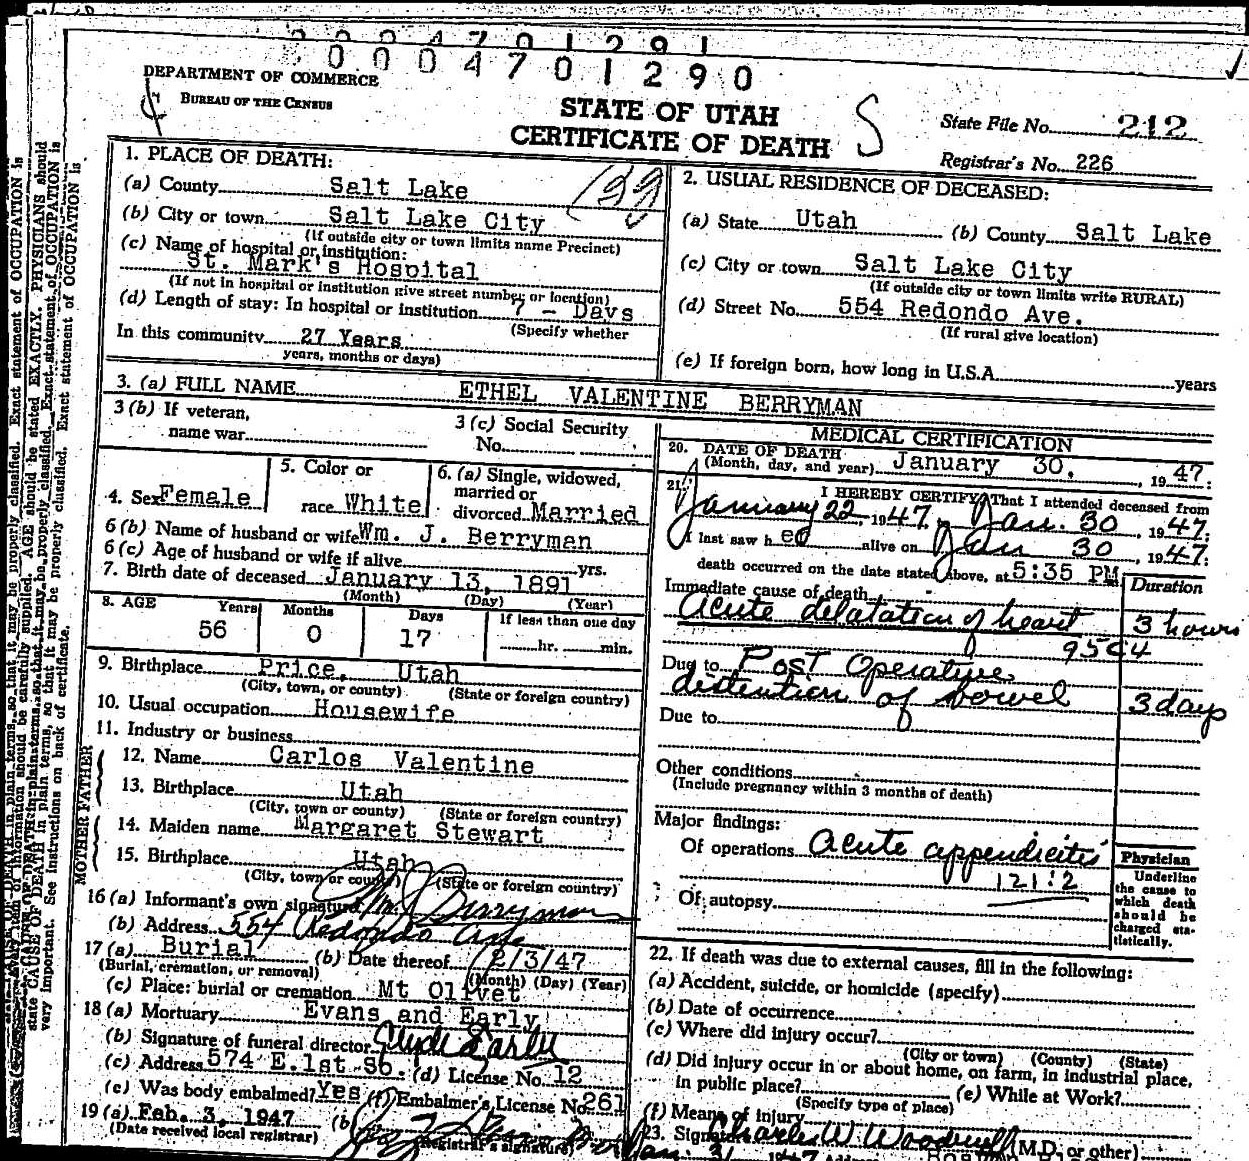 0004701290
DEPARTMENT OF COMMERCE
BUREAU OF THE CENSUS
STATE OF UTAH
CERTIFICATE OF DEATH
S
State File No. 212
Registrar's No. 226
1. PLACE OF DEATH:
(a) County Salt Lake
(b) City or town Salt Lake City
(If outside city or town limits name Precinct)
(c) Name of hospital or institution:
St. Mark's Hospital
(If not in hospital or institution give street number or location)
(d) Length of stay: In hospital or institution 7 - Days
(Specify whether
In this community 27 Years
years, months or days)
2. USUAL RESIDENCE OF DECEASED:
(a) State Utah (b) County Salt Lake
(c) City or town Salt Lake City
(If outside city or town limits write RURAL)
(d) Street No. 554 Redondo Ave.
(If rural give location)
(e) If foreign born, how long in U.S.A. years
3. (a) FULL NAME ETHEL VALENTINE BERRYMAN
3 (b) If veteran,
name war
3 (c) Social Security
No.
4. Sex Female
5. Color or
race White
6. (a) Single, widowed,
married or
divorced Married
6 (b) Name of husband or wife Wm. J. Berryman
6 (c) Age of husband or wife if alive yrs.
7. Birth date of deceased January 13, 1891
(Month) (Day) (Year)
8. AGE Years Months Days If less than one day
56 0 17 hr. min.
9. Birthplace Price, Utah
(City, town, or county) (State or foreign country)
10. Usual occupation Housewife
11. Industry or business
FATHER
12. Name Carlos Valentine
13. Birthplace Utah
(City, town or county) (State or foreign country)
MOTHER
14. Maiden name Margaret Stewart
15. Birthplace Utah
(City, town or county) (State or foreign country)
16 (a) Informant's own signature Wm J Berryman
(b) Address 554 Redondo Ave
17 (a) Burial (b) Date thereof 2/3/47
(Burial, cremation, or removal) (Month) (Day) (Year)
(c) Place: burial or cremation Mt Olivet
18 (a) Mortuary Evans and Early
(b) Signature of funeral director Clyde Early
(c) Address 574 E.1st So. (d) License No. 12
(e) Was body embalmed? Yes (f) Embalmer's License No. 261
19 (a) Feb. 3, 1947 (b)
(Date received local registrar) (Registrar's signature)
MEDICAL CERTIFICATION
20. DATE OF DEATH
(Month, day, and year) January 30, 1947.
21. I HEREBY CERTIFY, That I attended deceased from
January 22, 1947, Jan. 30, 1947.
I last saw her alive on Jan 30, 1947.
death occurred on the date stated above, at 5:35 PM
Immediate cause of death Duration
Acute delatation of heart 3 hours
95c4
Due to Post Operative
distention of bowel 3 days
Due to
Other conditions
(Include pregnancy within 3 months of death)
Major findings:
Of operations Acute appendicitis
121:2
Of autopsy
Physician
Underline
the cause to
which death
should be
charged sta-
tistically.
22. If death was due to external causes, fill in the following:
(a) Accident, suicide, or homicide (specify)
(b) Date of occurrence
(c) Where did injury occur?
(City or town) (County) (State)
(d) Did injury occur in or about home, on farm, in industrial place,
in public place? (e) While at Work?
(Specify type of place)
(f) Means of injury
23. Signature Charles W. Woodruff (M.D. or other)